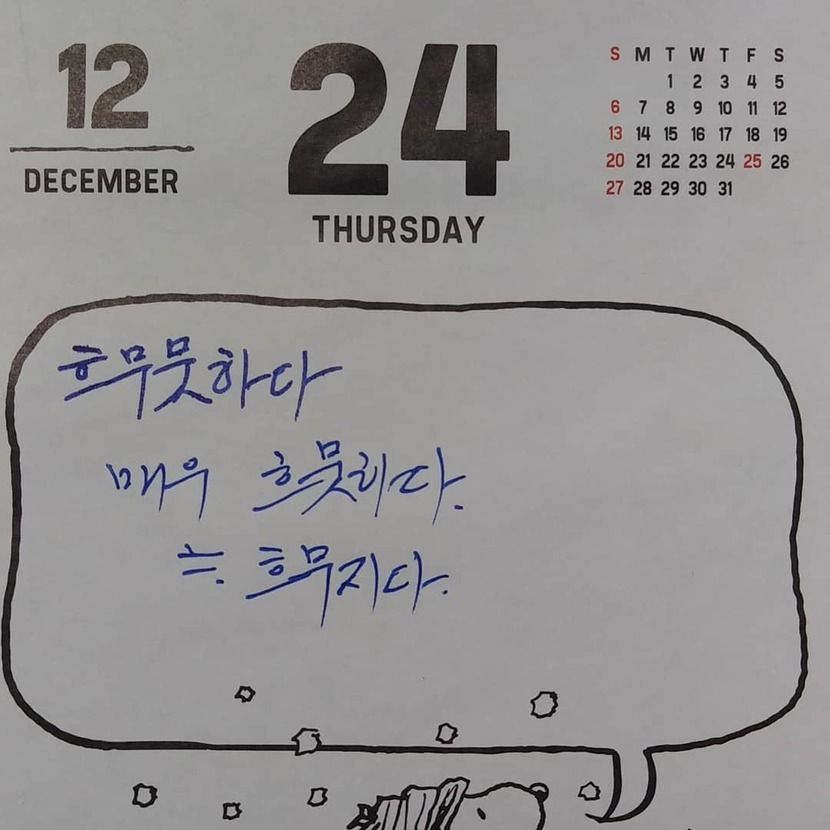 12
DECEMBER
24
THURSDAY
S M T W T F S
1 2 3 4 5
6 7 8 9 10 11 12
13 14 15 16 17 18 19
20 21 22 23 24 25 26
27 28 29 30 31
흐무뭇하다
매우 흐뭇하다.
≒ 흐무지다.